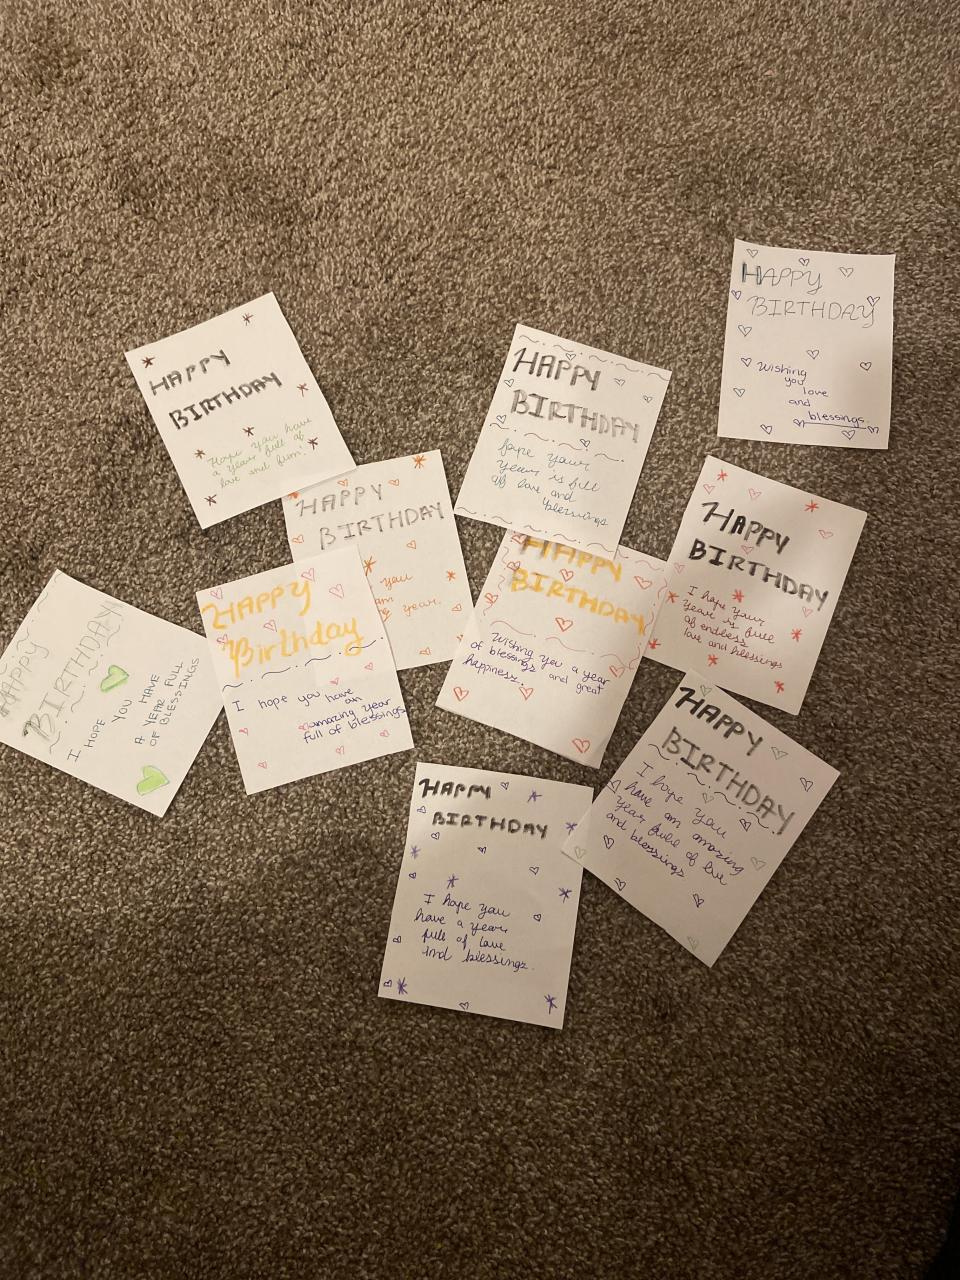 HAPPY
BIRTHDAY
Wishing
you
love
and
blessings.
HAPPY
BIRTHDAY
Hope you have
a year full of
love and fun!
HAPPY
BIRTHDAY
hope your
year is full
of love and
blessings
HAPPY
BIRTHDAY
you
year.
HAPPY
BIRTHDAY
I hope your
year is full
of endless
love and blessings
HAPPY
BIRTHDAY
Wishing you a year
of blessings and great
happiness.
HAPPY
Birthday
I hope you have
an
amazing year
full of blessings
HAPPY
BIRTHDAY
I HOPE YOU HAVE
A YEAR FULL
OF BLESSINGS
HAPPY
BIRTHDAY
I hope you
have an amazing
year full of love
and blessings
HAPPY
BIRTHDAY
I hope you
have a year
full of love
and blessings.